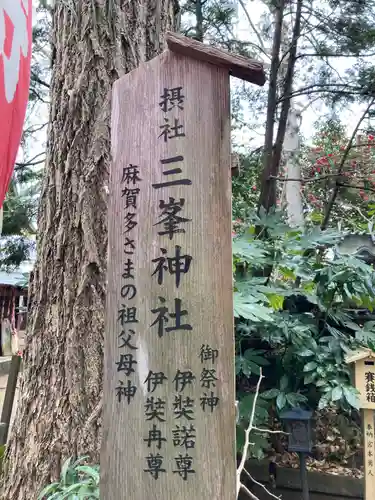 摂社
三峯神社
麻賀多さまの祖父母神
御祭神
伊奘諾尊
伊奘冉尊
賽銭箱
奉納